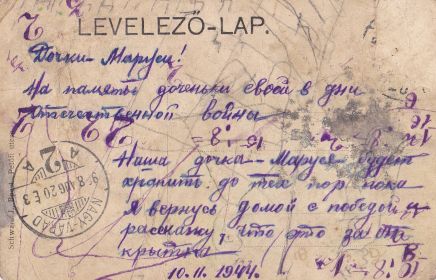 LEVELEZŐ-LAP.
Дочки-Маруси!
На память доченьки своей в дни
Отечественной войны
Наша дочка - Маруся будет
хранить до тех пор, пока
Я вернусь домой с победой и
расскажу, что это за от
крытка.
10.11.1944.
NAGY-VÁRAD